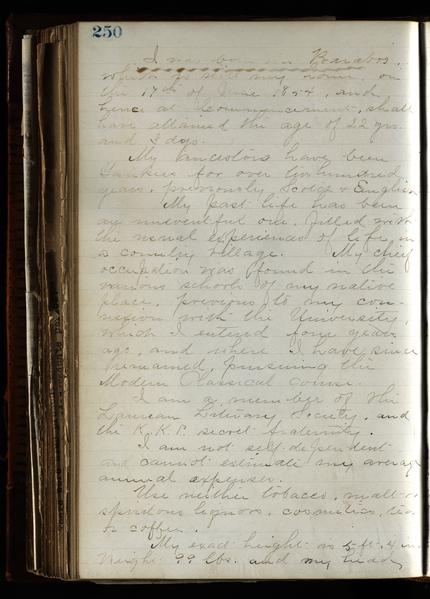 250
I was born in Baraboo,
which is still my home, on
the 17th of June 1854, and
hence at Commencement, shall
have attained the age of 22 yrs.
and 3 dys.
My Ancestors have been
Yankees for over two hundred
years, previously Scotch & English
My past life has been
an uneventful one, filled with
the usual experiences of life in
a country village. My chief
occupation was found in the
various schools of my native
place, previous to my con-
nection with the University,
which I entered four years
ago, and where I have since
remained, pursuing the
Modern Classical Course.
I am a member of the
Laurean Literary Society, and
the K. K. P. secret fraternity.
I am not self-dependent
and cannot estimate my average
annual expenses.
Use neither tobacco, malt or
spirituous liquors, cosmetics, tea
or coffee.
My exact height is 5 ft. 4 in.
Weight 99 lbs. and my head